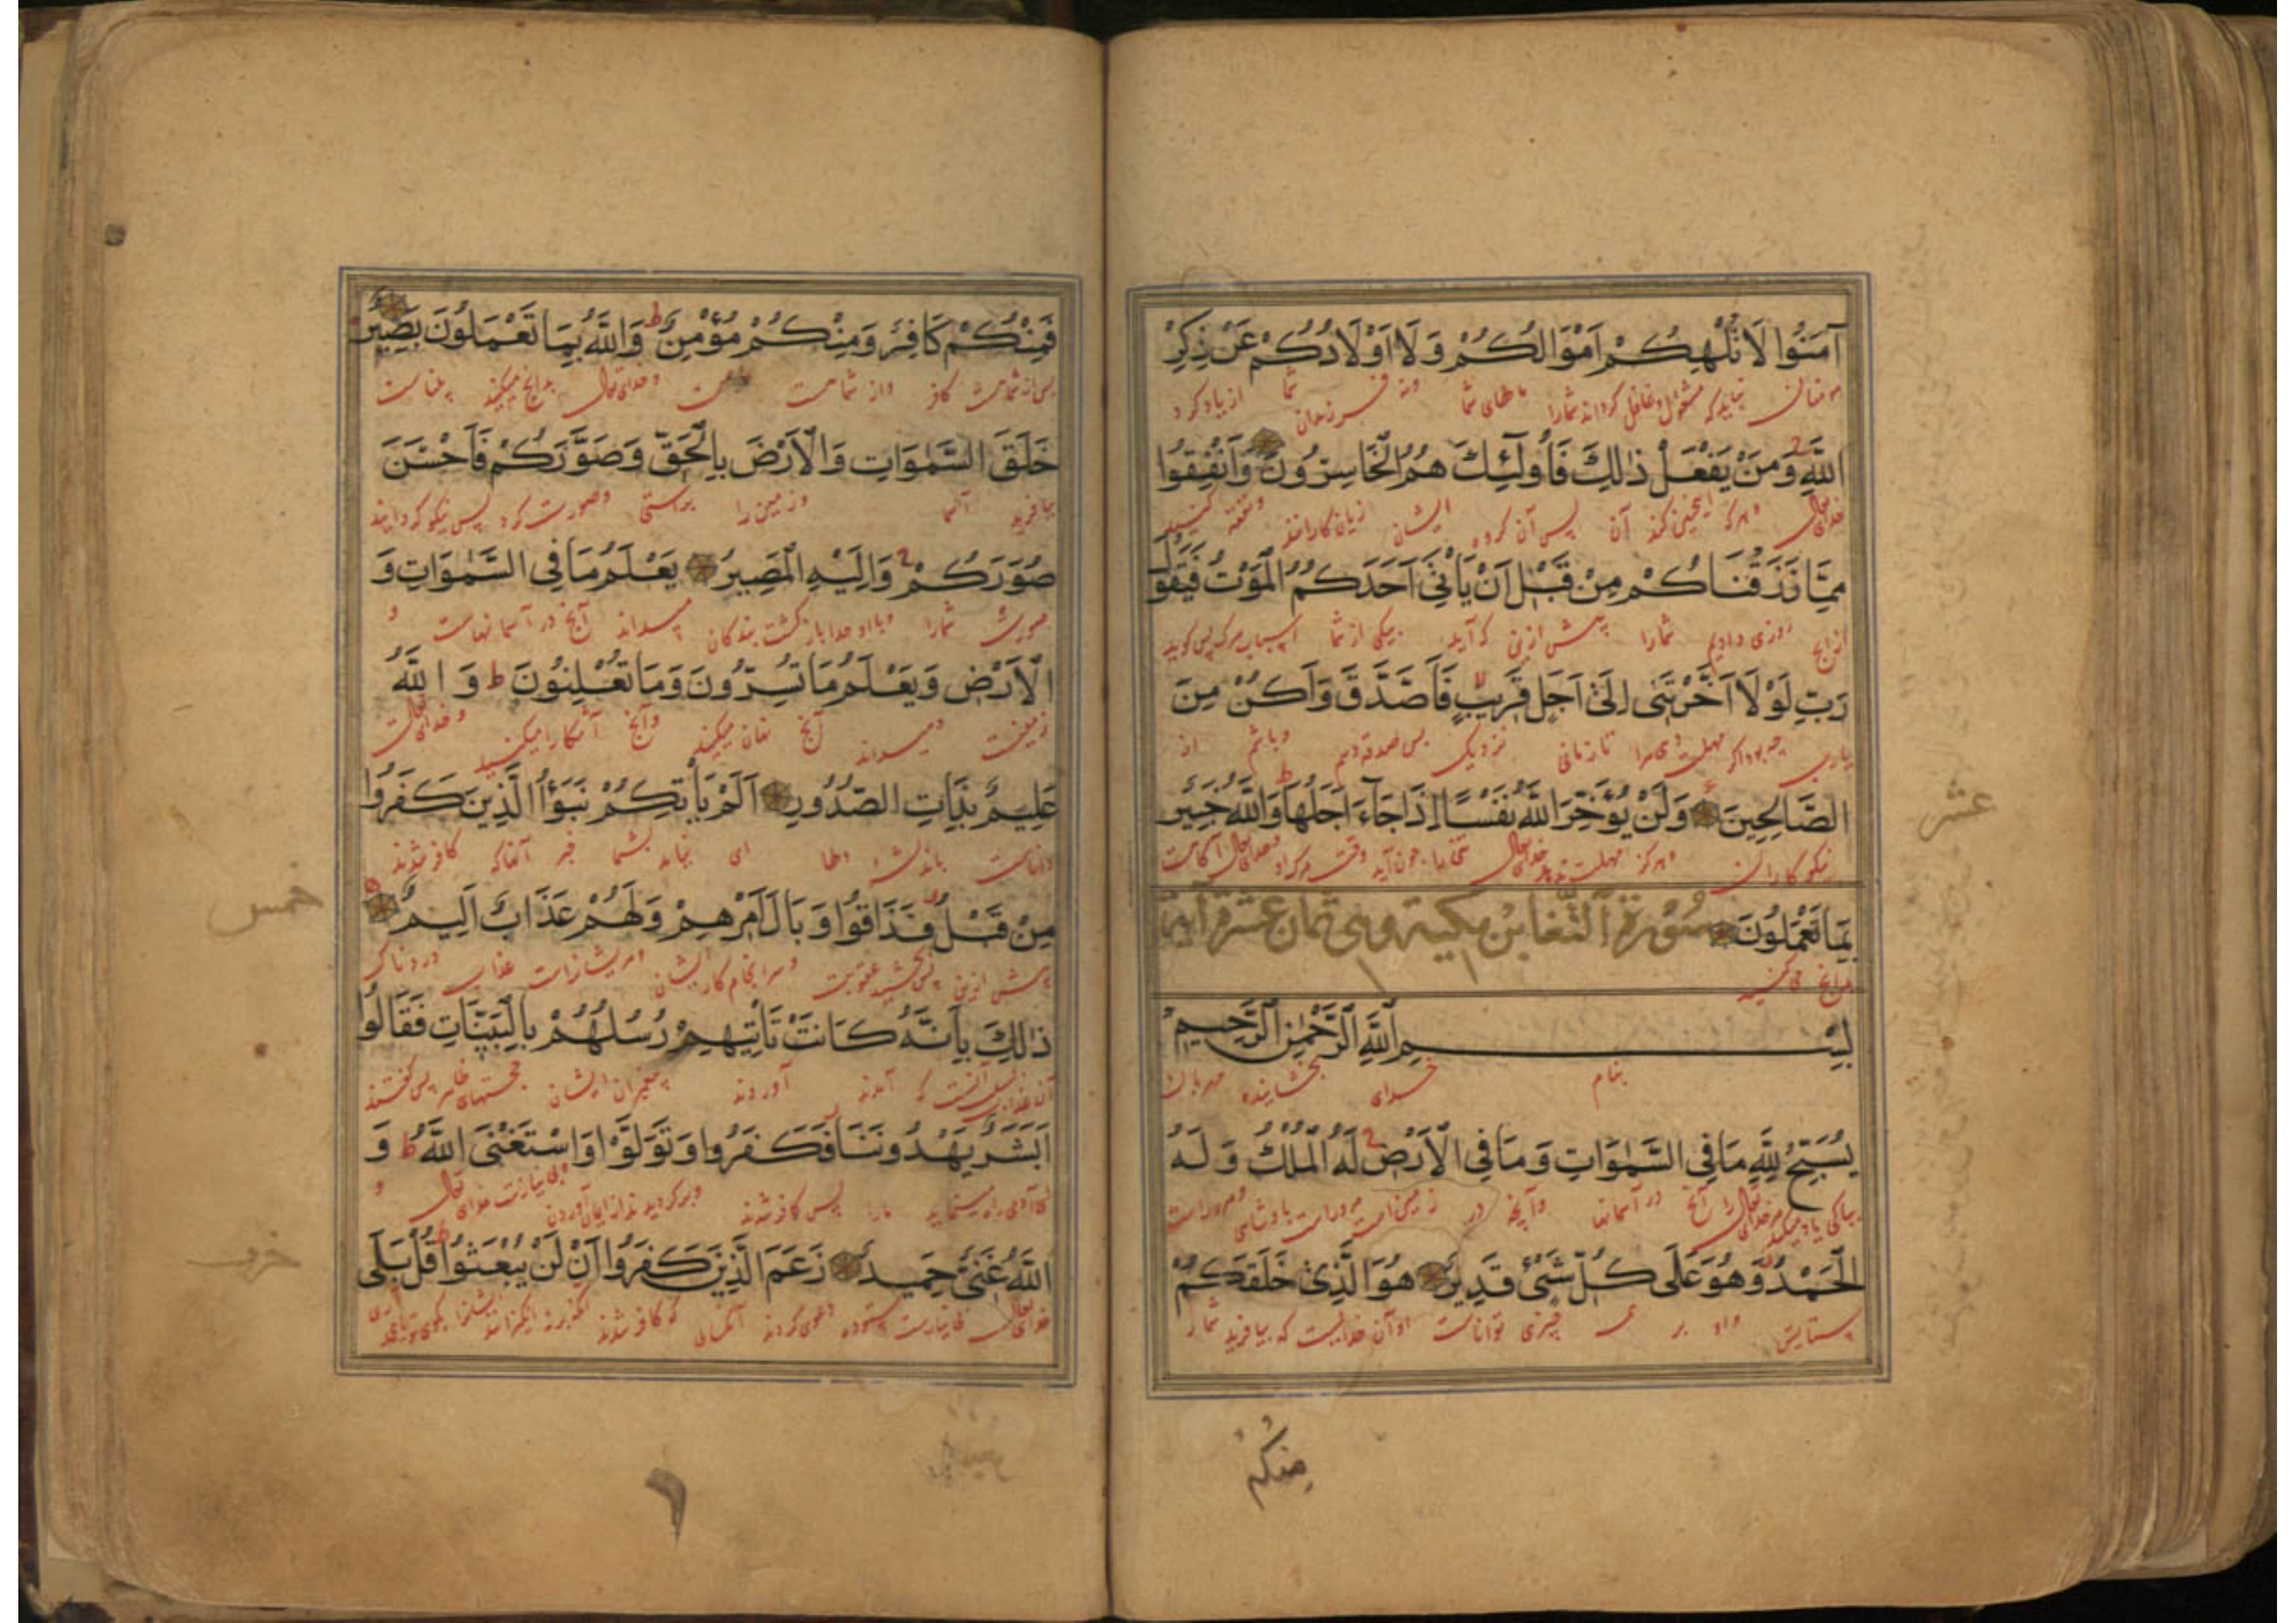 آمَنُوا لَا تُلْهِكُمْ اَمْوَالُكُمْ وَلَا اَوْلَادُكُمْ عَنْ ذِكْرِ
مؤمنان نبایدکه مشغول وغافل کرداند شمارا مالهای شما ونه فرزندان شما از یادکرد
اللّٰهِ وَمَنْ يَفْعَلْ ذٰلِكَ فَاُولٰٓئِكَ هُمُ الْخَاسِرُونَ وَاَنْفِقُوا
خدای تعالی وهرکه اینچنین کند آن پس آن کروه ایشان زیان کارانند ونفقه کنید
مِمَّا رَزَقْنَاكُمْ مِنْ قَبْلِ اَنْ يَأْتِيَ اَحَدَكُمُ الْمَوْتُ فَيَقُولَ
ازانچ روزی دادیم شمارا پیش ازین که آید بیکی از شما اسباب مرک پس کوید
رَبِّ لَوْلَا اَخَّرْتَنِى اِلَىٰ اَجَلٍ قَرِيبٍ فَاَصَّدَّقَ وَاَكُنْ مِنَ
یارب چه بود اکر مهلت دهی مرا تا زمانی نزدیک پس صدقه دهم وباشم از
الصَّالِحِينَ وَلَنْ يُؤَخِّرَ اللّٰهُ نَفْسًا اِذَا جَآءَ اَجَلُهَا وَاللّٰهُ خَبِيرٌ
نیکوکاران وهرکز مهلت ندهد خدای تعالی تنی را چون آید وقت مرک او وخدای تعالی آکاهست
بِمَا تَعْمَلُونَ سُوْرَةُ التَّغَابُنِ مَكِّيَّة وهى ثمان عشرة آية
بدانچ می کنید
بِسْمِ اللّٰهِ الرَّحْمٰنِ الرَّحِيمِ
بنام خدای بخشاینده مهربان
يُسَبِّحُ لِلّٰهِ مَا فِي السَّمٰوَاتِ وَمَا فِي الْاَرْضِ لَهُ الْمُلْكُ وَلَهُ
بپاکی یاد میکند مر خدای تعالی را آنچ در آسمانها وآنچه در زمین است مر وراست پادشاهی ومر وراست
الْحَمْدُ وَهُوَ عَلَى كُلِّ شَيْءٍ قَدِيرٌ هُوَ الَّذِى خَلَقَكُمْ
ستایش واو بر چیزی تواناست او آن خداییست که بیافرید شمارا
عشر
فَمِنْكُمْ كَافِرٌ وَمِنْكُمْ مُؤْمِنٌ ط وَاللّٰهُ بِمَا تَعْمَلُونَ بَصِيرٌ
پس از شماست کافر واز شماست وخدای تعالی بدانچ میکنید بیناست
خَلَقَ السَّمٰوَاتِ وَالْاَرْضَ بِالْحَقِّ وَصَوَّرَكُمْ فَاَحْسَنَ
بیافرید وزمین را براستی وصورت کرد پس نیکو کردانید
صُوَرَكُمْ وَاِلَيْهِ الْمَصِيرُ يَعْلَمُ مَا فِي السَّمٰوَاتِ وَ
صورت شمارا بازکشت بندکان میداند آنچ در آسمانهاست و
الْاَرْضِ وَيَعْلَمُ مَا تُسِرُّونَ وَمَا تُعْلِنُونَ ط وَاللّٰهُ
زمینست ومیداند آنچ نهان میکنید وآنچ آشکارا میکنید وخدای تعالی
عَلِيمٌ بِذَاتِ الصُّدُورِ اَلَمْ يَأْتِكُمْ نَبَؤُا الَّذِينَ كَفَرُوا
داناست ای نیامد بشما خبر آنانکه کافر شدند
مِنْ قَبْلُ فَذَاقُوا وَبَالَ اَمْرِهِمْ وَلَهُمْ عَذَابٌ اَلِيمٌ
پیش ازین عقوبت وسرانجام کار ایشان ومر ایشانراست عذاب دردناک
ذٰلِكَ بِاَنَّهُ كَانَتْ تَأْتِيهِمْ رُسُلُهُمْ بِالْبَيِّنَاتِ فَقَالُوا
که آمدند آوردند پیغمبران ایشان حجتهای ظاهر پس کفتند
اَبَشَرٌ يَهْدُونَنَا فَكَفَرُوا وَتَوَلَّوْا وَاسْتَغْنَى اللّٰهُ ط وَ
مارا پس کافر شدند وبرکردیدند از ایمان آوردن وبی نیازست خدای تعالی و
اللّٰهُ غَنِيٌّ حَمِيدٌ زَعَمَ الَّذِينَ كَفَرُوا اَنْ لَنْ يُبْعَثُوا قُلْ بَلَى
خدای تعالی بی نیازست ستوده دعوی کردند آنکسانی که کافر شدند
خمس
حزب
فمنكم